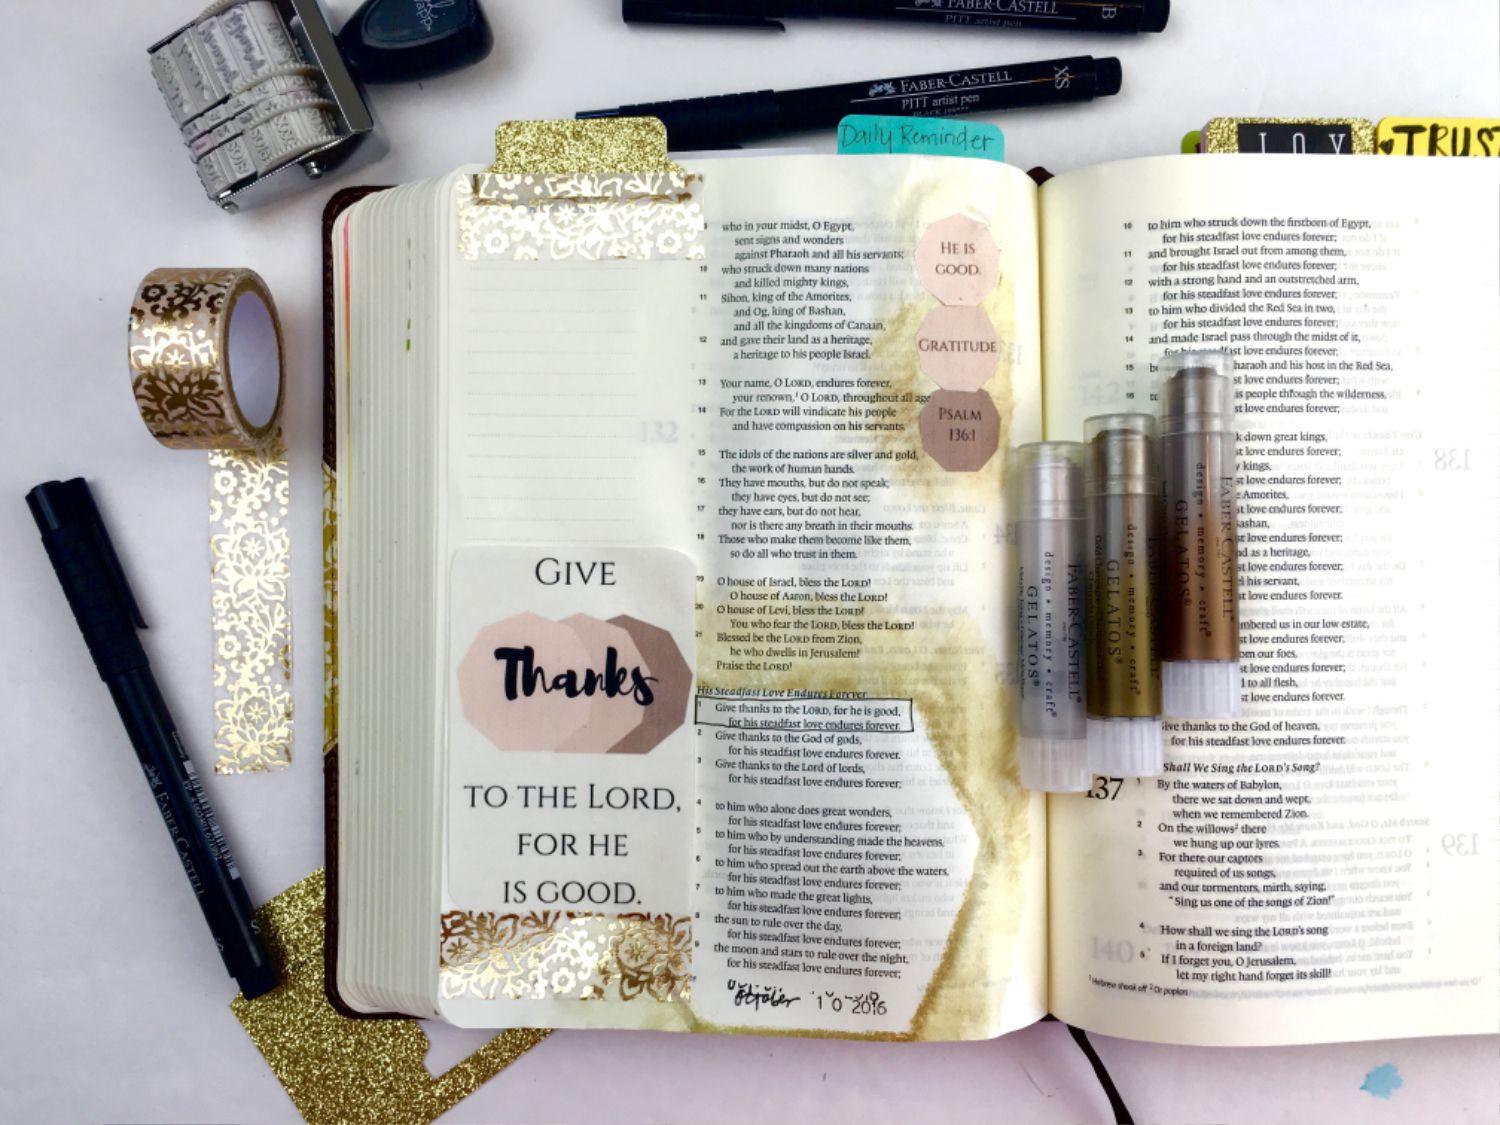 FABER-CASTELL
PITT artist pen
B
FABER-CASTELL
PITT artist pen
XS
Daily Reminder
JOY
TRUST
who in your midst, O Egypt,
sent signs and wonders
against Pharaoh and all his servants;
10 who struck down many nations
and killed mighty kings,
11 Sihon, king of the Amorites,
and Og, king of Bashan,
and all the kingdoms of Canaan,
12 and gave their land as a heritage,
a heritage to his people Israel.
13 Your name, O LORD, endures forever,
your renown,¹ O LORD, throughout all
14 For the LORD will vindicate his people
and have compassion on his servants.
15 The idols of the nations are silver and gold,
the work of human hands.
16 They have mouths, but do not speak;
they have eyes, but do not see;
17 they have ears, but do not hear,
nor is there any breath in their mouths.
18 Those who make them become like them,
so do all who trust in them.
19 O house of Israel, bless the LORD!
O house of Aaron, bless the LORD!
20 O house of Levi, bless the LORD!
You who fear the LORD, bless the LORD!
21 Blessed be the LORD from Zion,
he who dwells in Jerusalem!
Praise the LORD!
His Steadfast Love Endures Forever
1 Give thanks to the LORD, for he is good,
for his steadfast love endures forever.
2 Give thanks to the God of gods,
for his steadfast love endures forever.
3 Give thanks to the Lord of lords,
for his steadfast love endures forever;
4 to him who alone does great wonders,
for his steadfast love endures forever;
5 to him who by understanding made the heavens,
for his steadfast love endures forever;
6 to him who spread out the earth above the waters,
for his steadfast love endures forever;
7 to him who made the great lights,
for his steadfast love endures forever;
8 the sun to rule over the day,
for his steadfast love endures forever;
9 the moon and stars to rule over the night,
for his steadfast love endures forever;
October 10 2016
HE IS
GOOD.
GRATITUDE
PSALM
136:1
GIVE
Thanks
TO THE LORD,
FOR HE
IS GOOD.
10 to him who struck down the firstborn of Egypt,
for his steadfast love endures forever;
11 and brought Israel out from among them,
for his steadfast love endures forever;
12 with a strong hand and an outstretched arm,
for his steadfast love endures forever;
13 to him who divided the Red Sea in two,
for his steadfast love endures forever;
14 and made Israel pass through the midst of it,
for his steadfast love endures forever;
15 haraoh and his host in the Red Sea,
st love endures forever;
16 is people through the wilderness,
st love endures forever;
k down great kings,
st love endures forever;
kings,
st love endures forever;
e Amorites,
st love endures forever;
ashan,
st love endures forever;
d as a heritage,
st love endures forever;
his servant,
st love endures forever.
mbered us in our low estate,
st love endures forever;
om our foes,
st love endures forever;
to all flesh,
st love endures forever.
ive thanks to the God of heaven,
for his steadfast love endures forever.
Shall We Sing the LORD's Song?
137 1 By the waters of Babylon,
there we sat down and wept,
when we remembered Zion.
2 On the willows² there
we hung up our lyres.
3 For there our captors
required of us songs,
and our tormentors, mirth, saying,
“Sing us one of the songs of Zion!”
4 How shall we sing the LORD's song
in a foreign land?
5 If I forget you, O Jerusalem,
let my right hand forget its skill!
¹ Hebrew shook off ² Or poplars
FABER-CASTELL
design • memory • craft®
GELATOS®
FABER-CASTELL
design • memory • craft®
GELATOS®
FABER-CASTELL
design • memory • craft®
GELATOS®
FABER-CASTELL
S